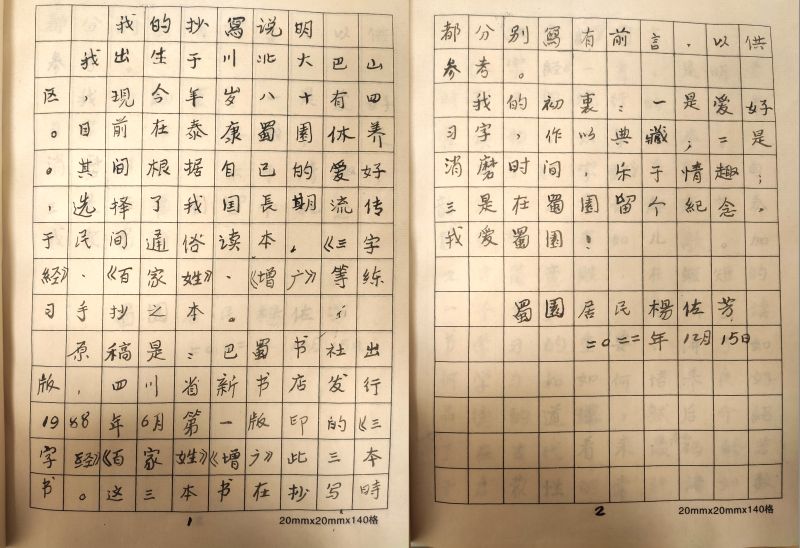 我的抄寫说明
我出生于川北大巴山
区，現今年岁八十有四
。目前在泰康蜀園休养
。其间根据自己的爱好
，选择了我国長期流传
于民间通俗读本。《三字
經》、《百家姓》、《增广》等练
习手抄之本。
原稿是：巴蜀书社出
版，四川省新书店发行
1988年6月第一版印的《三
字經》《百家姓》《增广》此三本
书。这三本书在抄写時
1
20mmx20mmx140格
都分别寫有前言，以供
参考。
我的初衷：一是爱好
习字，作以典藏；二是
消磨时间，乐于情趣；
三是在蜀園留个紀念。
我爱蜀園！
蜀園居民楊佐芳
二〇二二年12月15日
2
20mmx20mmx140格